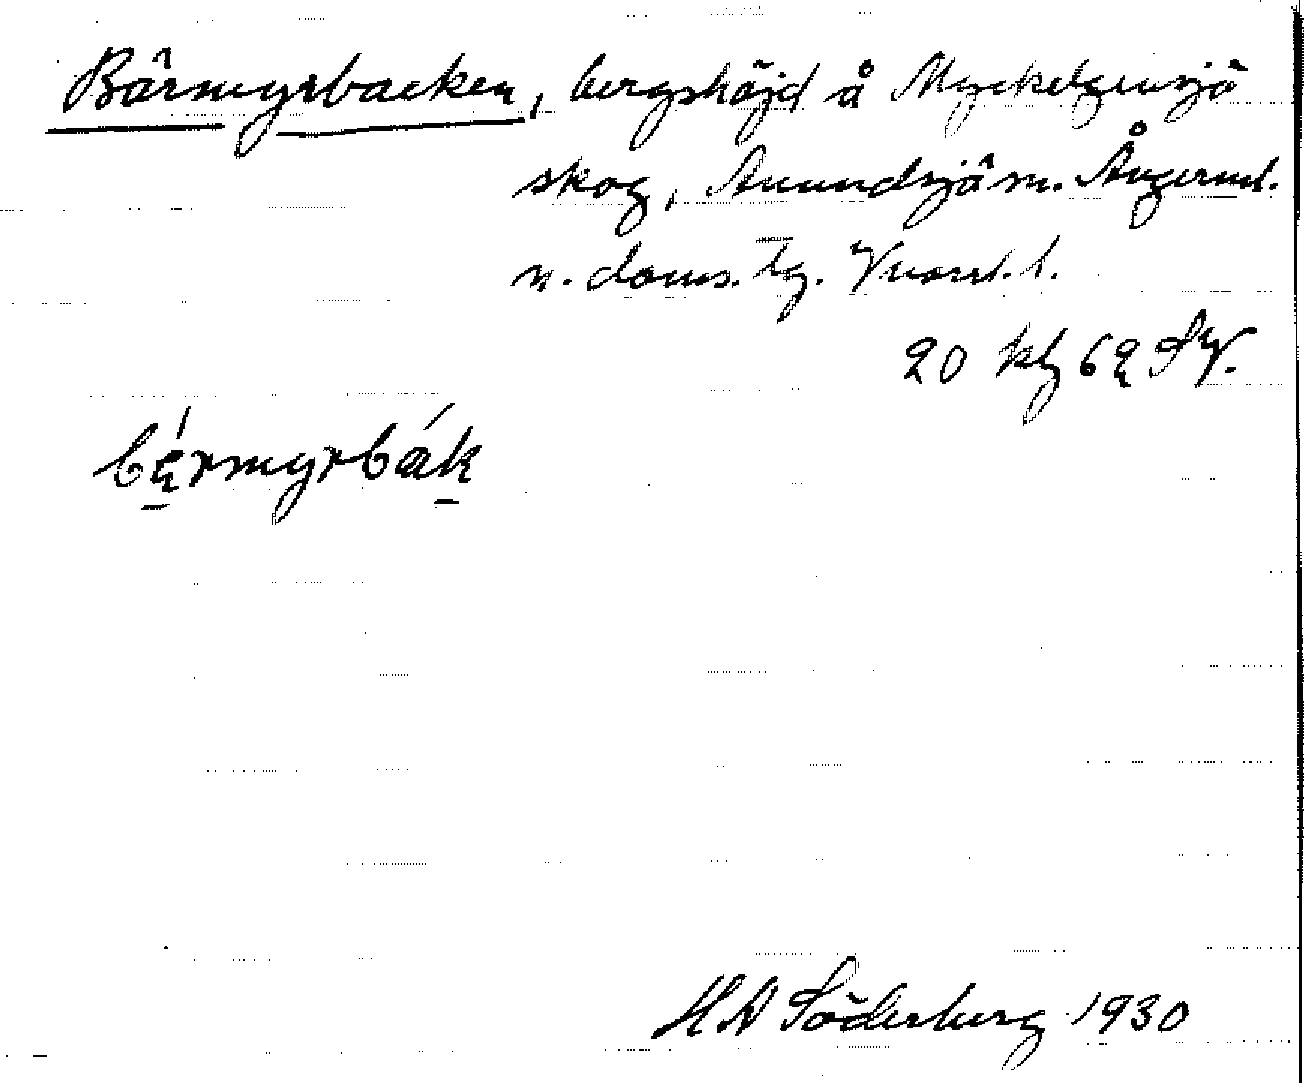 Bärmyrbacken, bergshöjd å Myckelgensjö
skog, Anundsjö sn. Ångerml.
n. doms. lg.
20 kb 62 SV.
bę́rmyrbák
H A Söderberg 1930